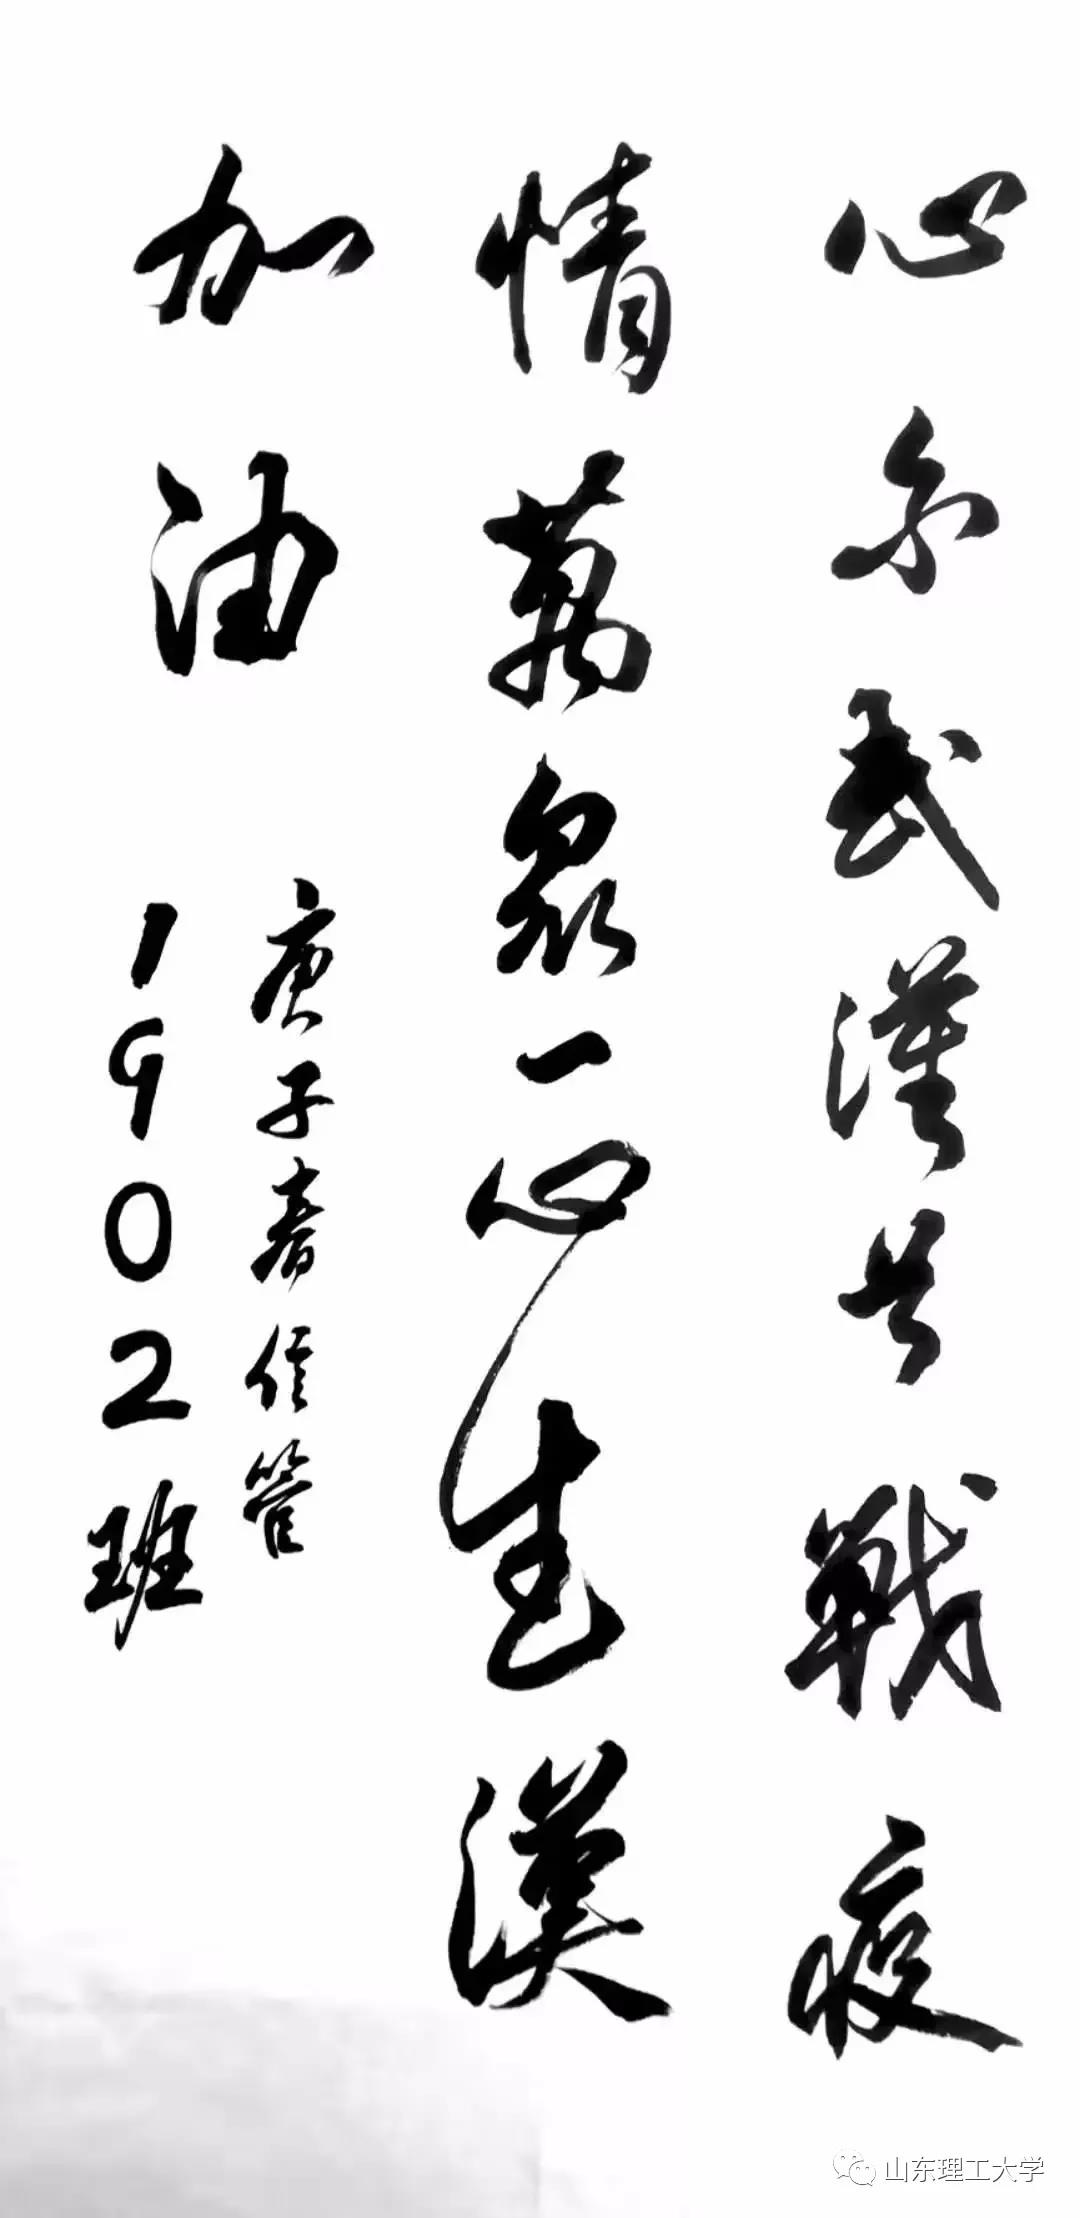 心系武漢共戰疫
情萬衆一心武漢
加油
庚子春信管
1902班
山东理工大学